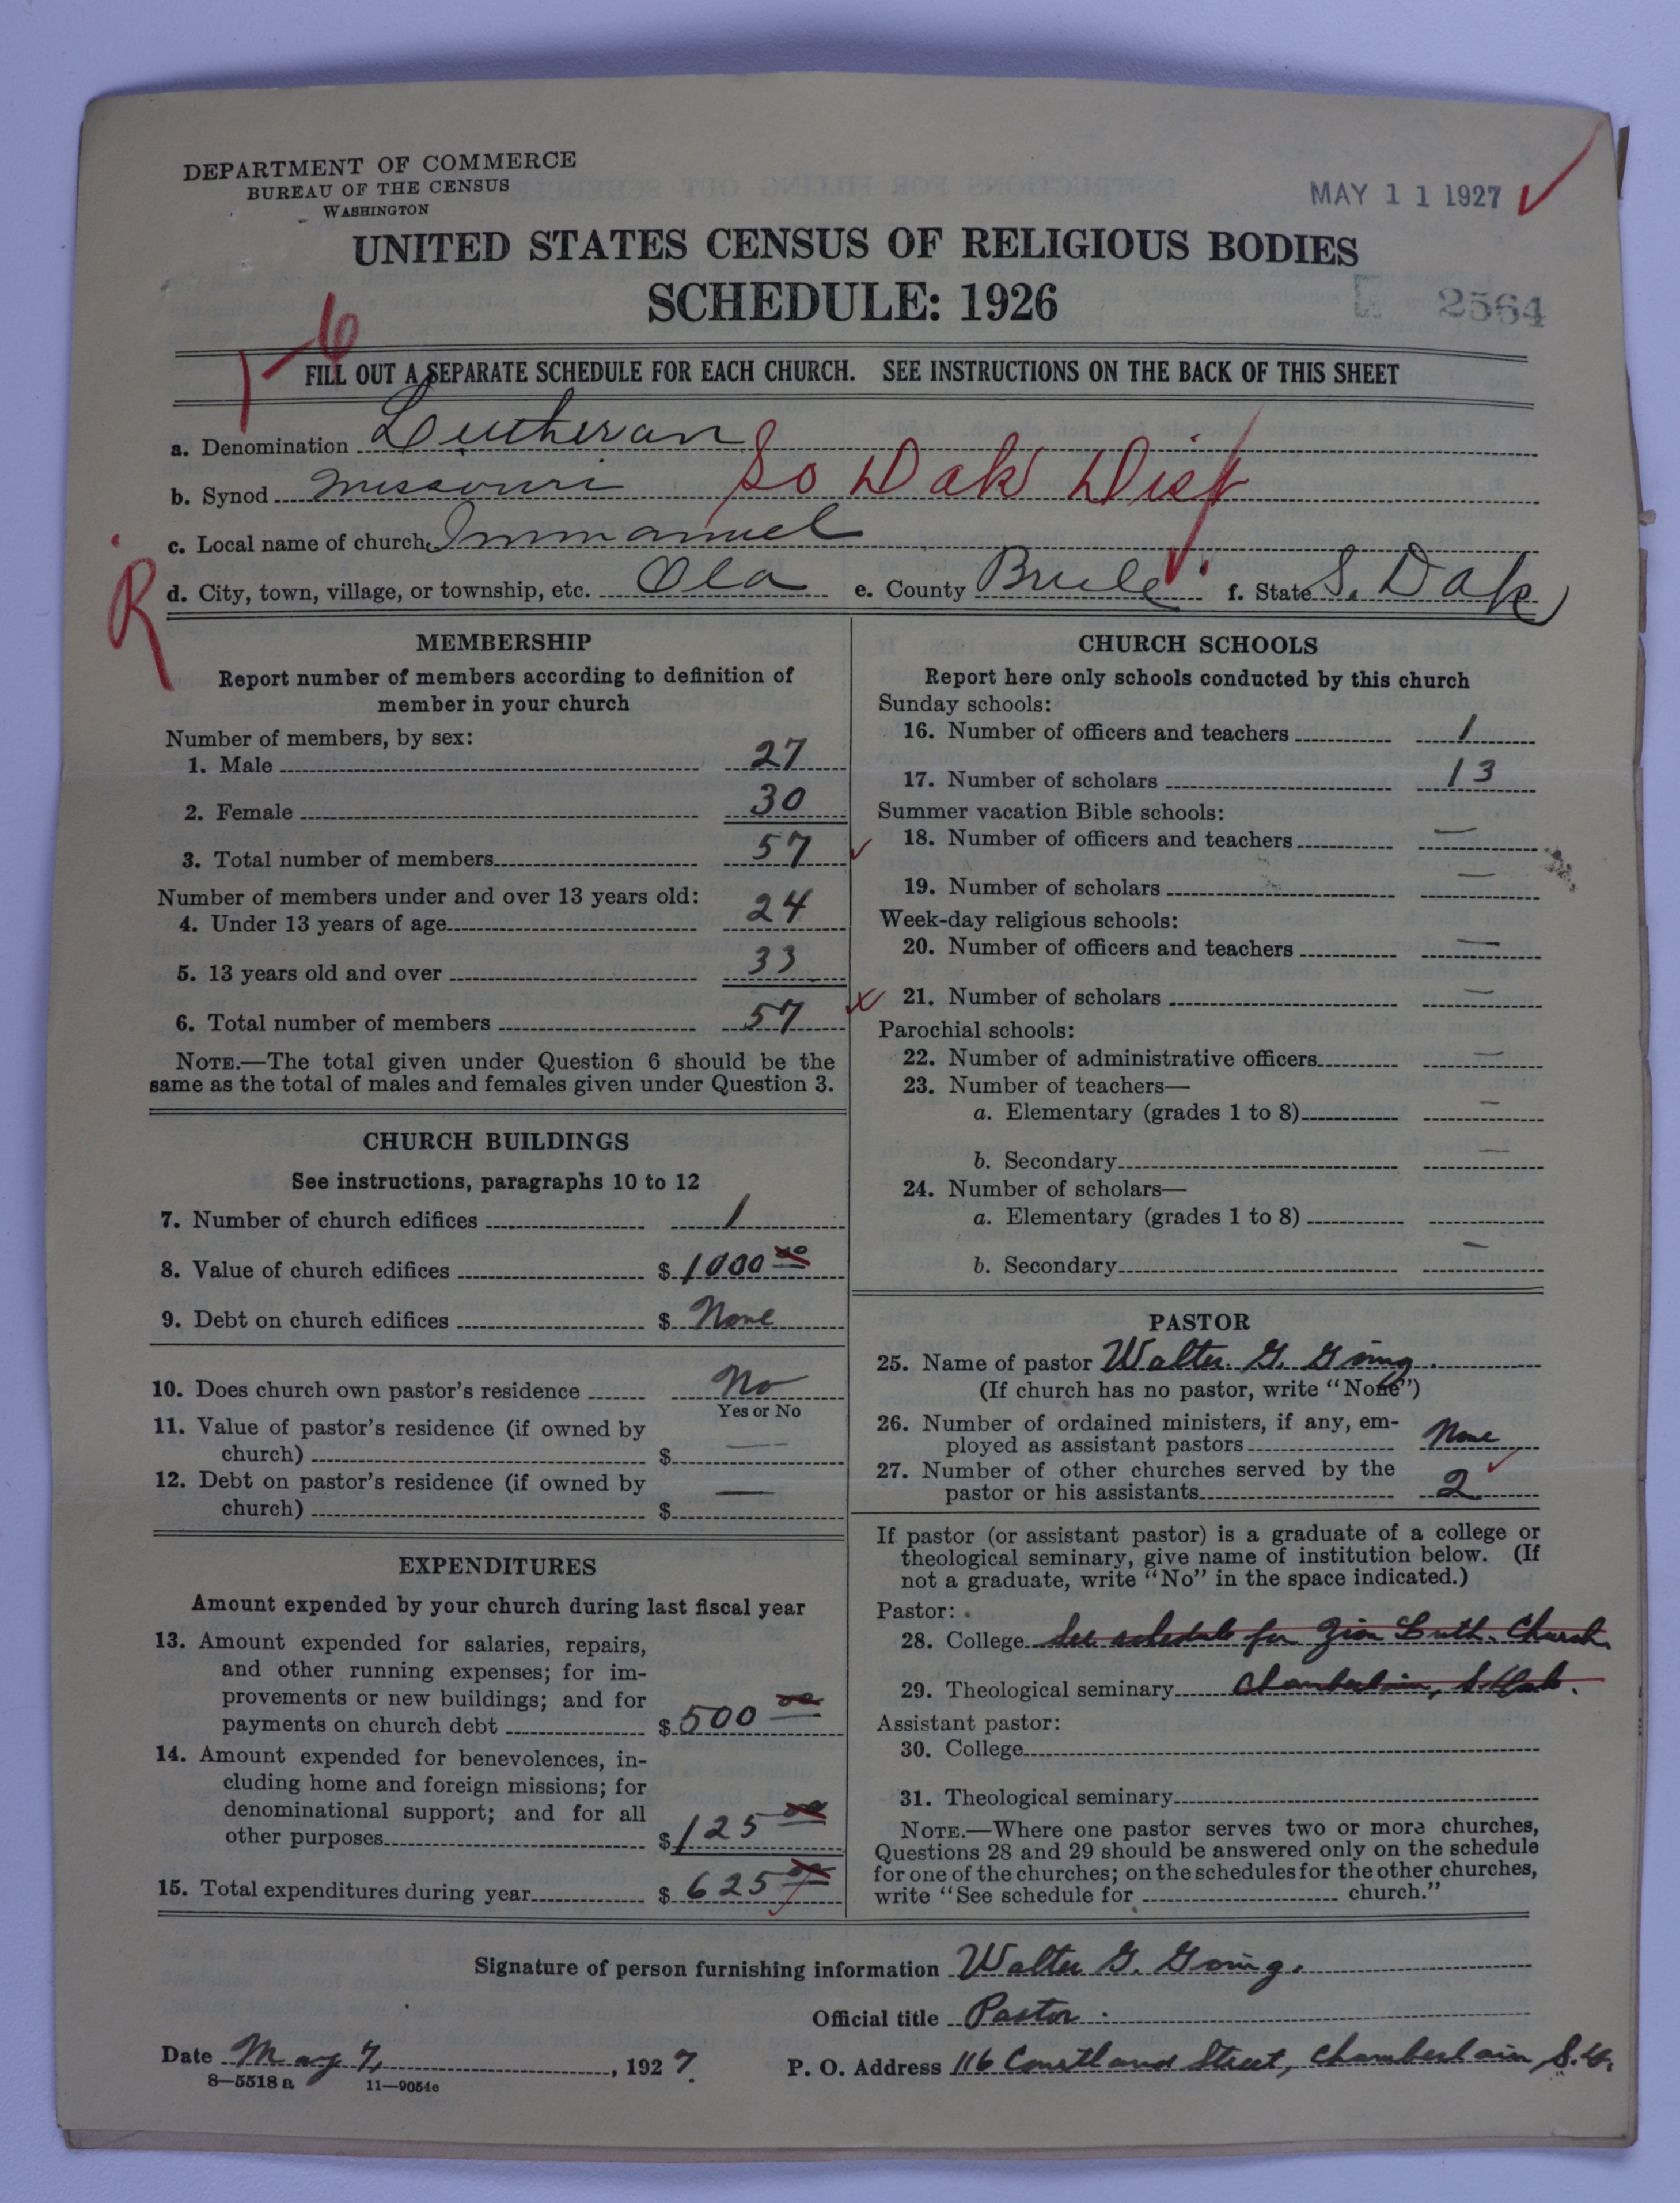 DEPARTMENT OF COMMERCE
BUREAU OF THE CENSUS
WASHINGTON
MAY 11 1927
UNITED STATES CENSUS OF RELIGIOUS BODIES
SCHEDULE: 1926
2564
1-6
FILL OUT A SEPARATE SCHEDULE FOR EACH CHURCH. SEE INSTRUCTIONS ON THE BACK OF THIS SHEET
a. Denomination Lutheran
b. Synod Missouri So Dak Dist
c. Local name of church Immanuel
R
d. City, town, village, or township, etc. Ola e. County Brule f. State S. Dak
MEMBERSHIP
Report number of members according to definition of
member in your church
Number of members, by sex:
1. Male 27
2. Female 30
3. Total number of members 57
Number of members under and over 13 years old:
4. Under 13 years of age 24
5. 13 years old and over 33
6. Total number of members 57
NOTE.—The total given under Question 6 should be the
same as the total of males and females given under Question 3.
CHURCH BUILDINGS
See instructions, paragraphs 10 to 12
7. Number of church edifices 1
8. Value of church edifices $ 1000 00
9. Debt on church edifices $ None
10. Does church own pastor's residence No
Yes or No
11. Value of pastor's residence (if owned by
church) $ —
12. Debt on pastor's residence (if owned by
church) $ —
EXPENDITURES
Amount expended by your church during last fiscal year
13. Amount expended for salaries, repairs,
and other running expenses; for im-
provements or new buildings; and for
payments on church debt $ 500 00
14. Amount expended for benevolences, in-
cluding home and foreign missions; for
denominational support; and for all
other purposes $ 125 00
15. Total expenditures during year $ 625 00
CHURCH SCHOOLS
Report here only schools conducted by this church
Sunday schools:
16. Number of officers and teachers 1
17. Number of scholars 13
Summer vacation Bible schools:
18. Number of officers and teachers —
19. Number of scholars —
Week-day religious schools:
20. Number of officers and teachers —
21. Number of scholars —
Parochial schools:
22. Number of administrative officers —
23. Number of teachers—
a. Elementary (grades 1 to 8) —
b. Secondary —
24. Number of scholars—
a. Elementary (grades 1 to 8)
b. Secondary —
PASTOR
25. Name of pastor Walter G. Going.
(If church has no pastor, write "None")
26. Number of ordained ministers, if any, em-
ployed as assistant pastors None
27. Number of other churches served by the
pastor or his assistants 2
If pastor (or assistant pastor) is a graduate of a college or
theological seminary, give name of institution below. (If
not a graduate, write "No" in the space indicated.)
Pastor:
28. College See schedule for Zion Luth. Church
29. Theological seminary Chamberlain, S. Dak.
Assistant pastor:
30. College
31. Theological seminary
NOTE.—Where one pastor serves two or more churches,
Questions 28 and 29 should be answered only on the schedule
for one of the churches; on the schedules for the other churches,
write "See schedule for church."
Signature of person furnishing information Walter G. Going.
Official title Pastor
Date May 7, 1927. P. O. Address 116 Courtland Street, Chamberlain S.D.
8—5518 a 11—9054c